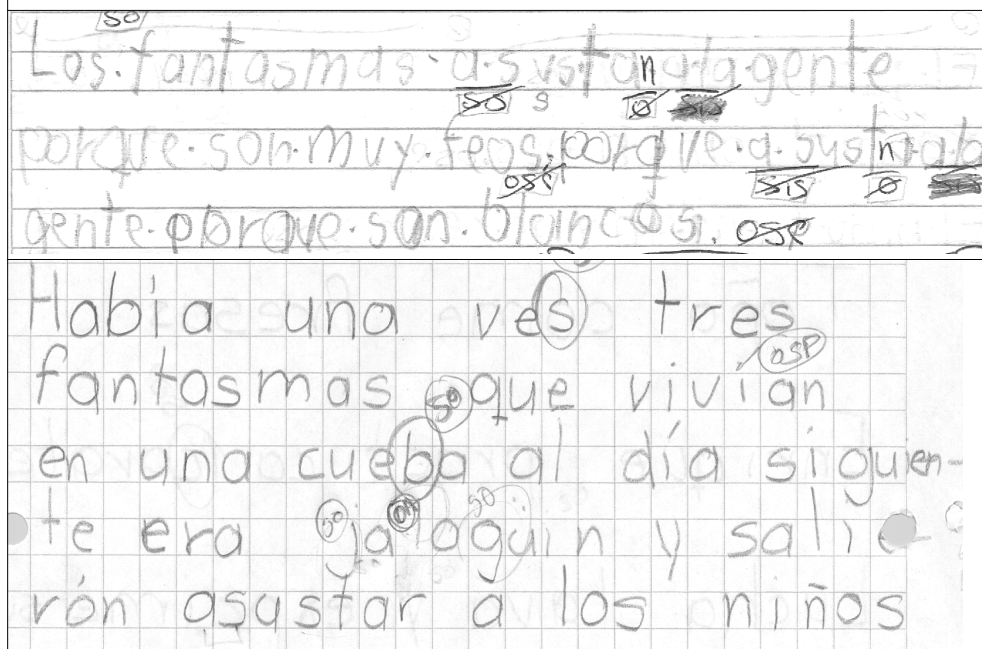 SO
Los.fantasmas.a.sustan.a.la.gente
SO s O sis
porque.son.muy.feos.porque.a.sustn.a.la
OSP sis O sis
gente.porque.son.blancos. OSP
Había una ves tres
OSP
fantasmas so que vivían
en una cueba al día siguien-
so on so
te era jalaoguin y salie
rón asustar a los niños